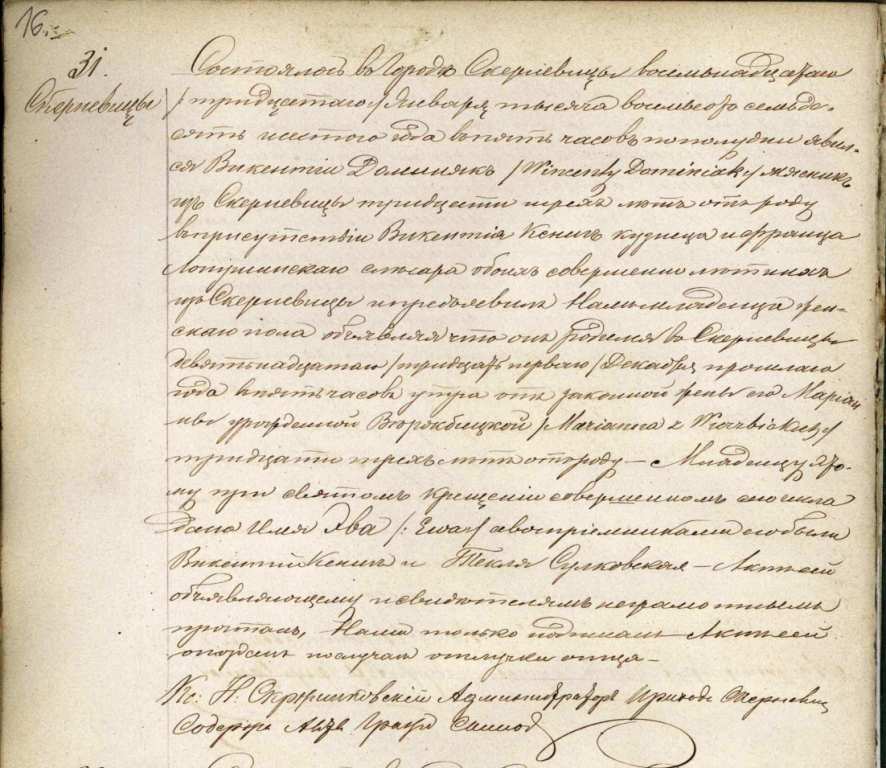 16.
31.
Скерневицы
Состоялось в Городѣ Скерневицы восемьнадцатаго
/тридцатаго/ Января тысяча восемьсотъ семьде-
сятъ шестого года въ пять часовъ пополудни явил-
ся Викентій Доминякъ /Wincenty Dominiak/ мясникъ
изъ Скерневицы тридцати трехъ лѣтъ отъ роду
въ присутствіи Викентія Кенигъ кузнеца и Франца
слюсара обоихъ совершеннолѣтнихъ
изъ Скерневицы и предъявилъ Намъ младенца жен-
скаго пола объявляя что онъ родился въ Скерневицы
девятьнадцатаго /тридцать перваго/ Декабря прошлаго
года въ пять часовъ утра отъ законной жены его Маріан
ны урожденной /Marianna z Wierzbickich/
тридцати трехъ лѣтъ отъ роду – Младенцу это-
му при святомъ крещеніи совершенномъ сего числа
дано Имя Эва /:Ewa:/ а воспріемниками его были
Викентій Кенигъ и Текля Сулковская – Актъ сей
объявляющему и свидѣтелямъ неграмотнымъ
прочтанъ, Нами только подписанъ – Актъ сей
опозданъ по случаю отлучки отца –
Кс: Н. Администраторъ Прихода Скерневиц
Содержа Акта Гражд Самод